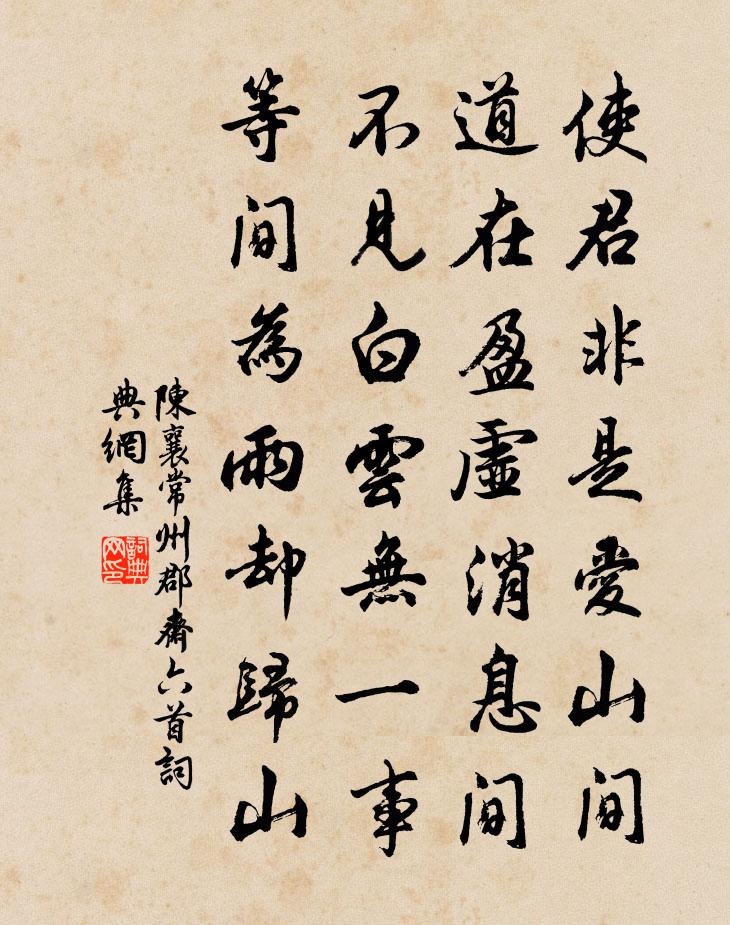 使君非是愛山間
道在盈虛消息間
不見白雲無一事
等閒為雨却歸山
陳襄常州郡齋六首詞
典網集
詞典
网印